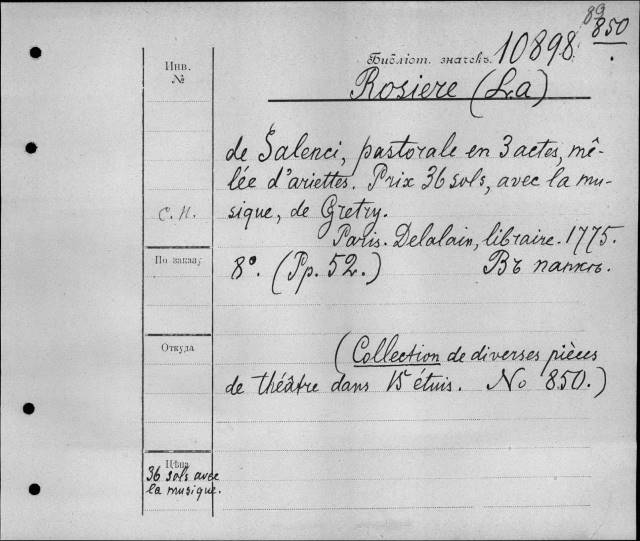 89
850
Библіот. значекъ. 10898
Инв.
№
Rosiere (La)
de Salenci, pastorale en 3 actes, mê-
lée d'ariettes. Prix 36 sols, avec la mu-
С. П.
sique, de Gretry.
Paris. Delalain, libraire. 1775.
По заказу
8°. (Pp. 52.) Въ папкѣ.
Откуда
(Collection de diverses pièces
de théâtre dans 15 étuis. No 850.)
Цѣна
36 sols avec
la musique.